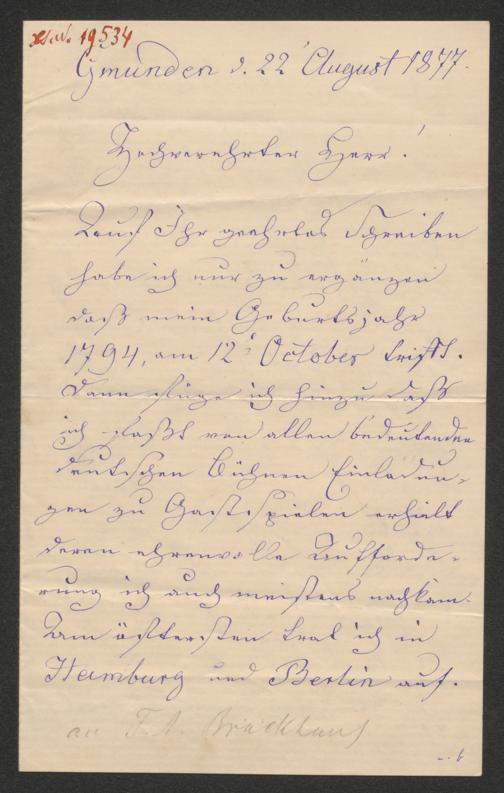 19534
Gmunden d. 22 August 1877.
Hochverehrter Herr!
Auf Ihr geehrtes Schreiben
habe ich nur zu ergänzen
daß mein Geburtsjahr
1794, am 12 October trifft.
Dann füge ich hinzu daß
ich fast von allen bedeutenden
deutschen Bühnen Einladun-
gen zu Gastspielen erhielt
deren ehrenvolle Aufforde-
rung ich auch meistens nachkam.
Am öftersten trat ich in
Hamburg und Berlin auf.
an F. A. Brockhaus